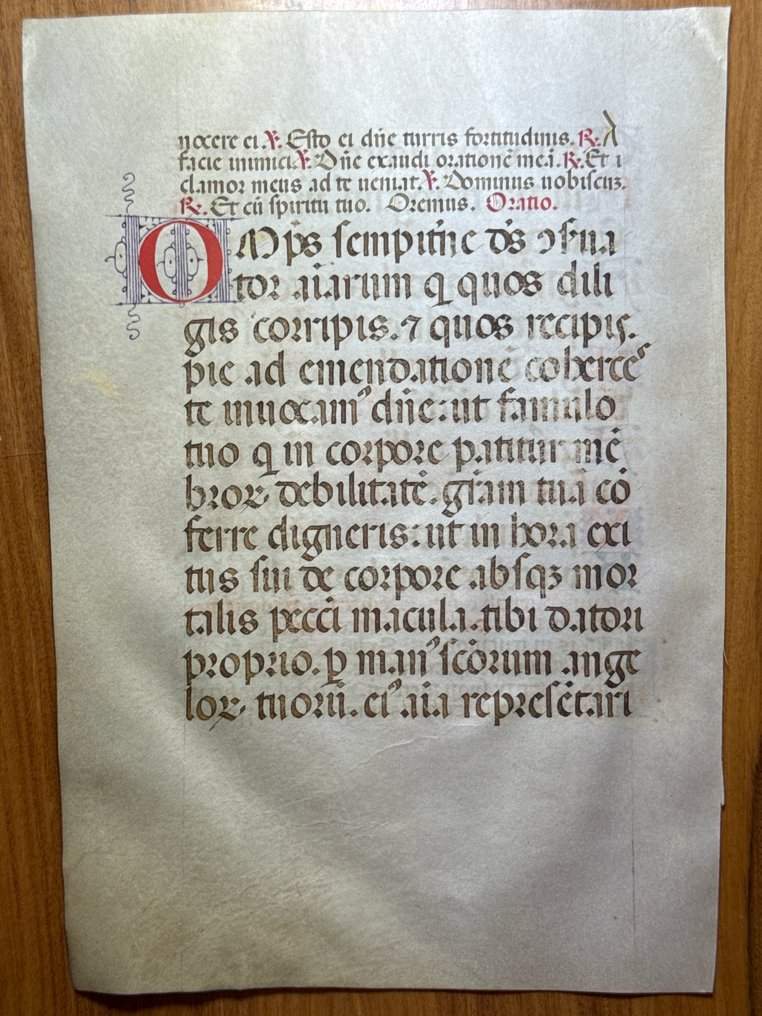 nocere ei. ℣. Esto ei dn̄e turris fortitudinis. ℟. A
facie inimici. ℣. Dn̄e exaudi orationē meā. ℟. Et
clamor meus ad te ueniat. ℣. Dominus uobiscuz.
℟. Et cū spiritu tuo. Oremus. Oratio.
OMp̄s sempit̄ne ds̄ ꝯſeua
tor aīarum q quos dili
gis corripis. ⁊ quos recipis.
pie ad emendationē coherces
te inuocamꝰ dn̄e: ut famulo
tuo q in corpore patitur mē
broꝝ debilitatē. gr̄am tuā cō
ferre digneris: ut in hora exi
tus ſui de corpore abſqꝫ mor
talis pecc̄i macula. tibi datori
proprio. ꝑ manꝰ ſcōrum ange
loꝝ tuorū. eiꝰ aīa repreſētari